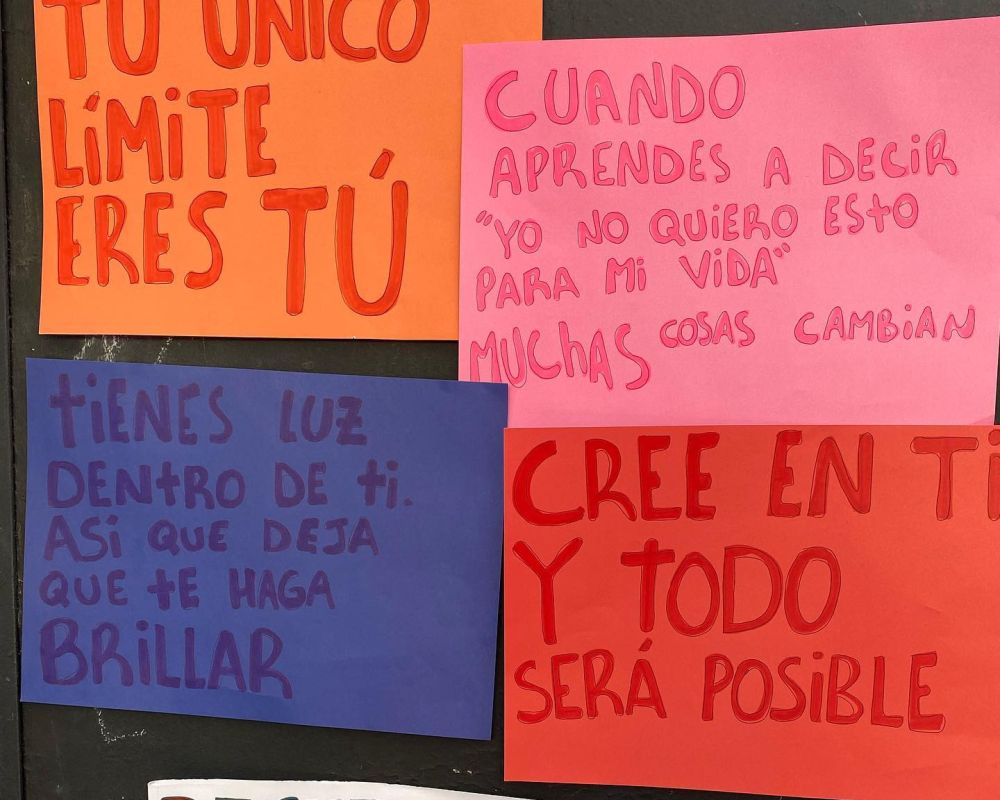 TU ÚNICO
LÍMITE
ERES TÚ
CUANDO
APRENDES A DECIR
"YO NO QUIERO ESTO
PARA MI VIDA"
MUCHAS COSAS CAMBIAN
TIENES LUZ
DENTRO DE TI.
ASI QUE DEJA
QUE TE HAGA
BRILLAR
CREE EN TI
Y TODO
SERÁ POSIBLE